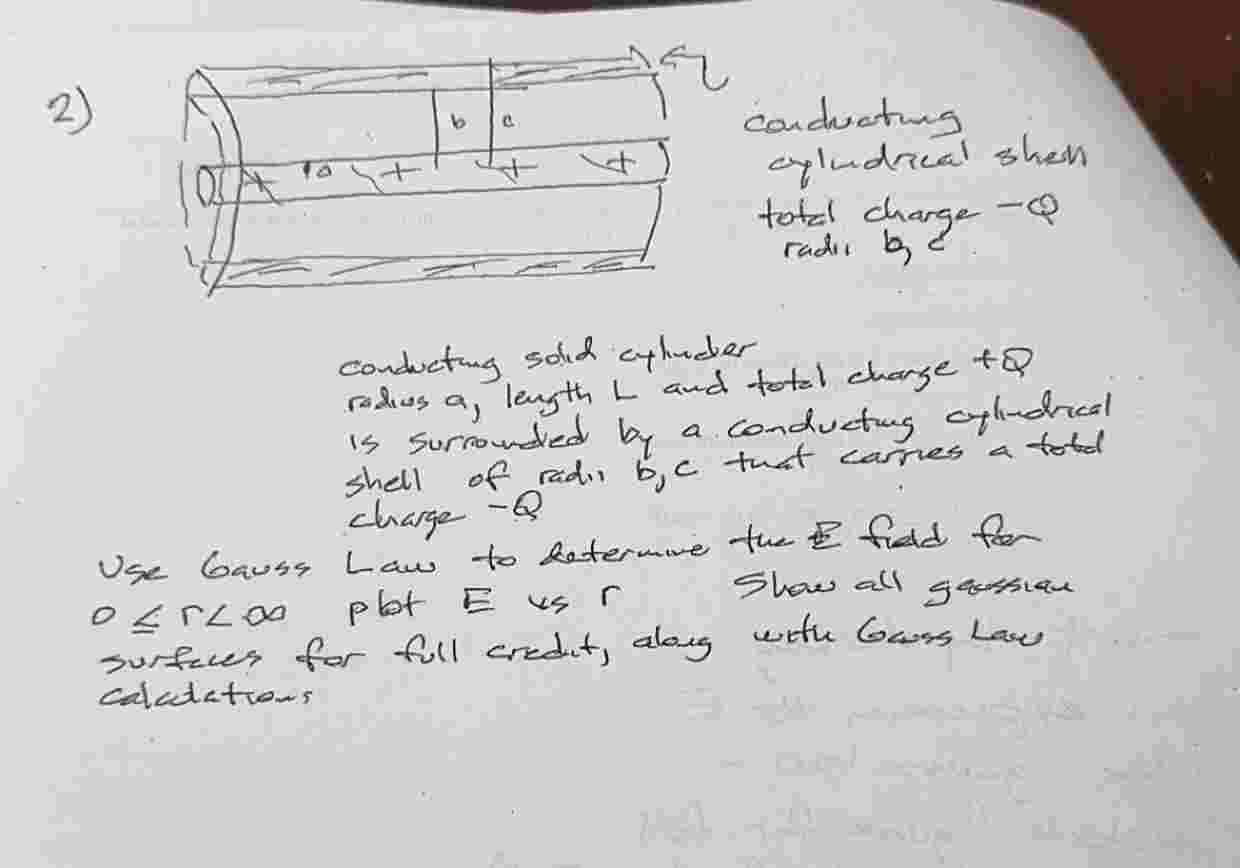 2)
b c
a + + + +
conducting
cylindrical shell
total charge -Q
radii b, c.
conducting solid cylinder
radius a, length L and total charge +Q
is surrounded by a conducting cylindrical
shell of radii b, c that carries a total
charge -Q
Use Gauss Law to determine the E field for
0 ≤ r < ∞ plot E vs r Show all gaussian
surfaces for full credit, along with Gauss Law
calculations